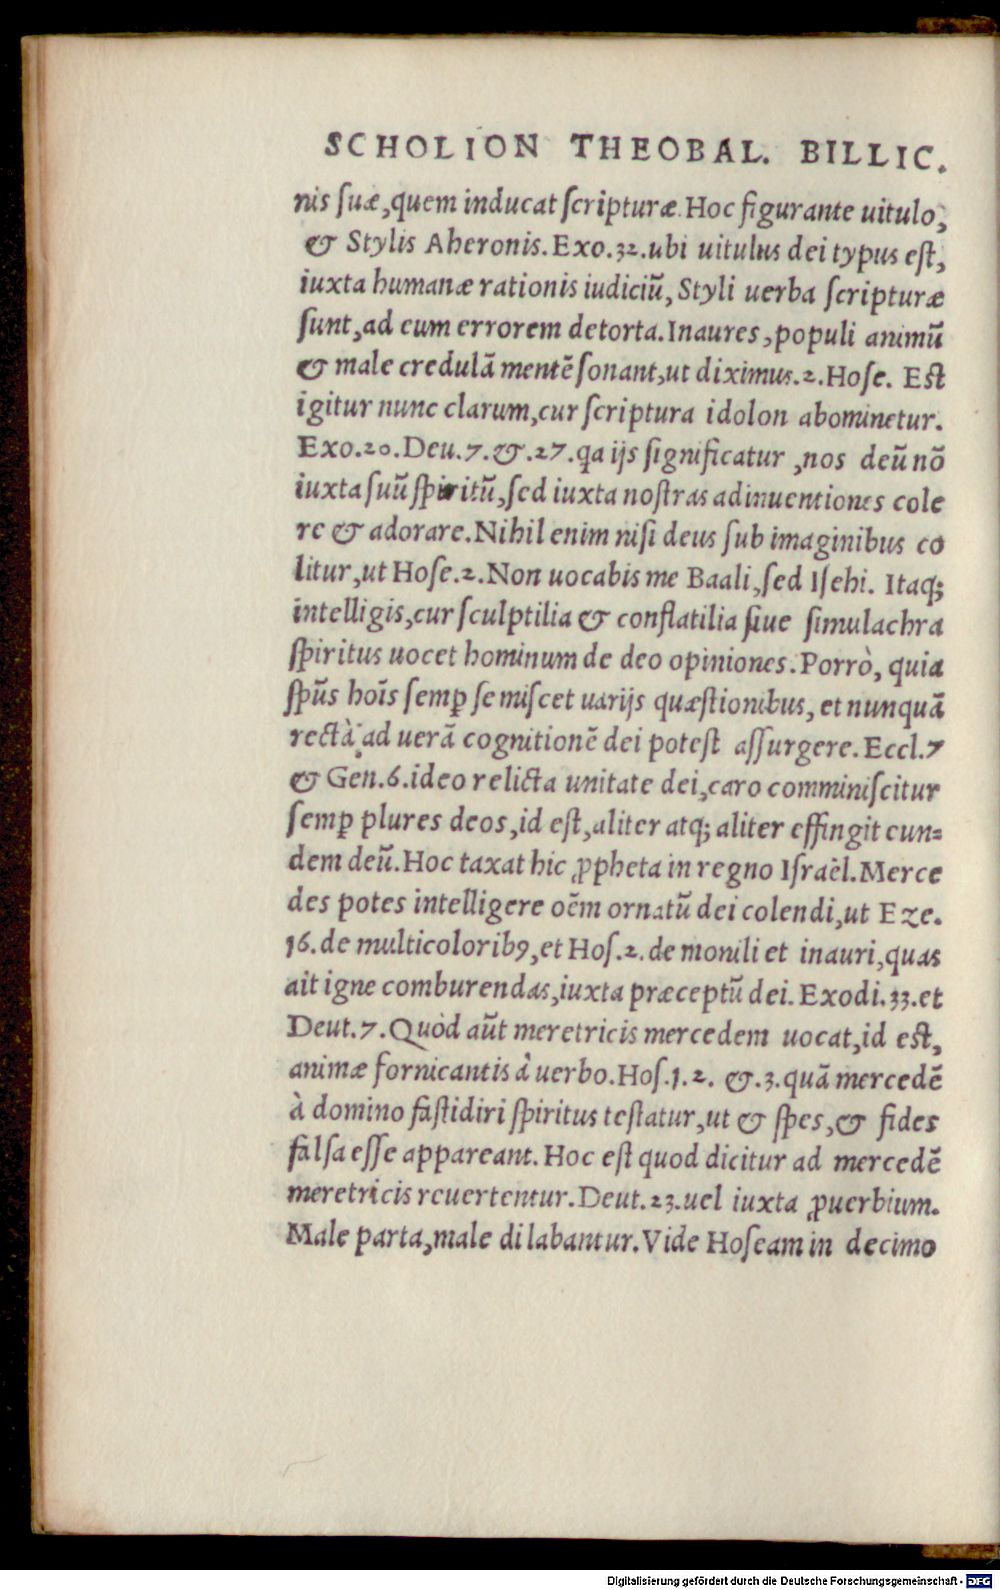 SCHOLION THEOBAL. BILLIC.
nis ſuæ,quem inducat ſcripturæ. Hoc figurante uitulo,
& Stylis Aheronis. Exo.32.ubi uitulus dei typus eſt,
iuxta humanæ rationis iudiciũ, Styli uerba ſcripturæ
ſunt,ad eum errorem detorta. Inaures,populi animũ
& male credulã mentẽ ſonant,ut diximus.2.Hoſe. Eſt
igitur nunc clarum,cur ſcriptura idolon abominetur.
Exo.20.Deu.7.&.27.qa ijs ſignificatur ,nos deũ nõ
iuxta ſuũ ſpiritũ,ſed iuxta noſtras adinuentiones cole
re & adorare. Nihil enim niſi deus ſub imaginibus co
litur,ut Hoſe.2.Non uocabis me Baali,ſed Iſehi. Itaq;
intelligis,cur ſculptilia & conflatilia ſiue ſimulachra
ſpiritus uocet hominum de deo opiniones. Porrò, quia
ſpũs hoĩs ſemꝑ ſe miſcet uarijs quæſtionibus, et nunquã
rectà ad uerã cognitionẽ dei poteſt aſſurgere. Eccl.7
& Gen.6.ideo relicta unitate dei,caro comminiſcitur
ſemꝑ plures deos,id eſt,aliter atq; aliter effingit eun=
dem deũ. Hoc taxat hic ꝓpheta in regno Iſraël. Merce
des potes intelligere oẽm ornatũ dei colendi,ut Eze.
16.de multicoloribꝰ,et Hoſ.2.de monili et inauri,quas
ait igne comburendas,iuxta præceptũ dei. Exodi.33.et
Deut.7.Quòd aũt meretricis mercedem uocat,id eſt,
animæ fornicantis à uerbo. Hoſ.1.2. &.3.quã mercedẽ
à domino faſtidiri ſpiritus teſtatur,ut & ſpes,& fides
falſa eſſe appareant. Hoc eſt quod dicitur ad mercedẽ
meretricis reuertentur. Deut.23.uel iuxta ꝓuerbium.
Male parta,male dilabantur. Vide Hoſeam in decimo
Digitalisierung gefördert durch die Deutsche Forschungsgemeinschaft - DFG